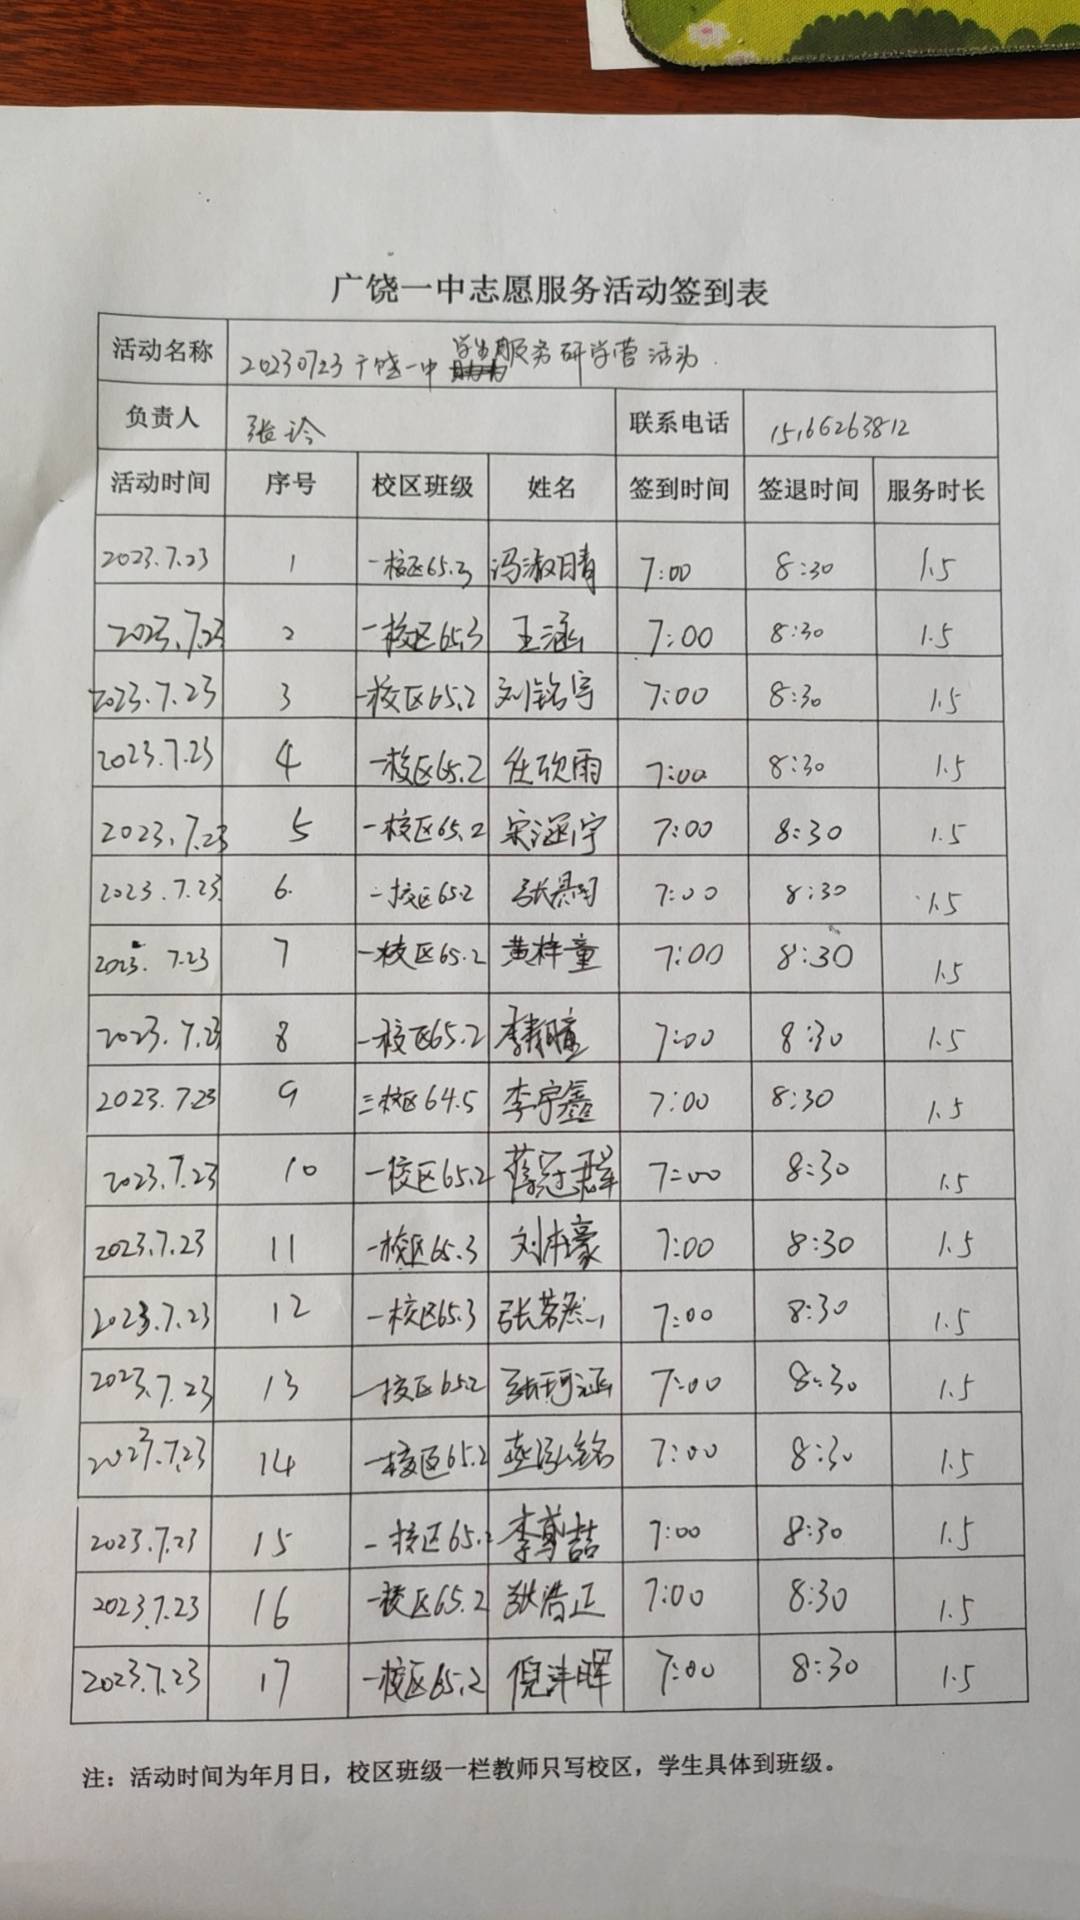 广饶一中志愿服务活动签到表
活动名称 20230723广饶一中学生服务研学营活动.
负责人 张玲 联系电话 15166263812
活动时间 序号 校区班级 姓名 签到时间 签退时间 服务时长
2023.7.23 1 一校区65.3 冯淑晴 7:00 8:30 1.5
2023.7.23 2 一校区65.3 王涵 7:00 8:30 1.5
2023.7.23 3 一校区65.2 刘铭宇 7:00 8:30 1.5
2023.7.23 4 一校区65.2 任欣雨 7:00 8:30 1.5
2023.7.23 5 一校区65.2 宋涵宇 7:00 8:30 1.5
2023.7.23 6. 一校区65.2 张 7:00 8:30 1.5
2023.7.23 7 一校区65.2 黄梓童 7:00 8:30 1.5
2023.7.23 8 一校区65.2 李 7:00 8:30 1.5
2023.7.23 9 三校区64.5 李宇鑫 7:00 8:30 1.5
2023.7.23 10 一校区65.2 冠 7:00 8:30 1.5
2023.7.23 11 一校区65.3 刘本豪 7:00 8:30 1.5
2023.7.23 12 一校区65.3 张若然 7:00 8:30 1.5
2023.7.23 13 一校区65.2 张珂涵 7:00 8:30 1.5
2023.7.23 14 一校区65.2 燕泓铭 7:00 8:30 1.5
2023.7.23 15 一校区65.2 李尊喆 7:00 8:30 1.5
2023.7.23 16 一校区65.2 张浩正 7:00 8:30 1.5
2023.7.23 17 一校区65.2 倪沣晖 7:00 8:30 1.5
注：活动时间为年月日，校区班级一栏教师只写校区，学生具体到班级。